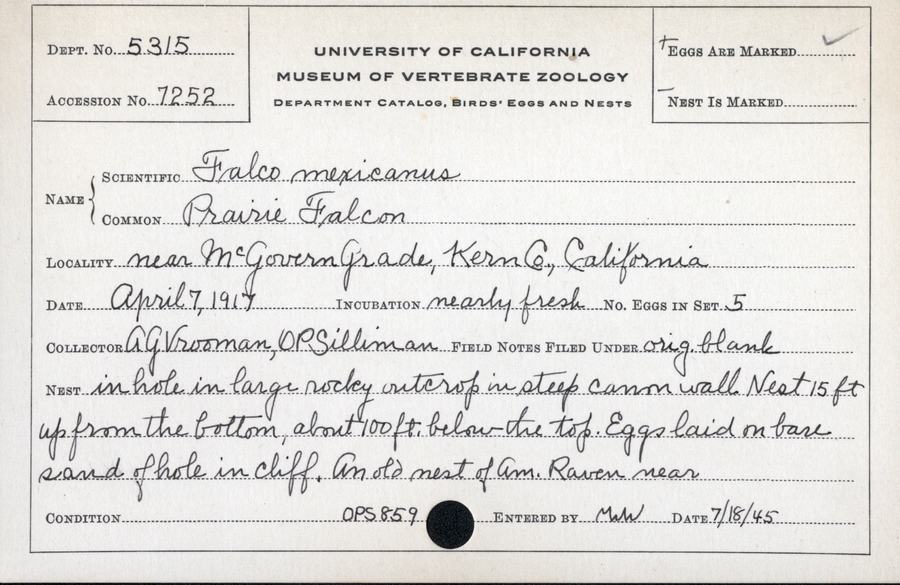 Dept. No. 5315
Accession No. 7252
UNIVERSITY OF CALIFORNIA
MUSEUM OF VERTEBRATE ZOOLOGY
Department Catalog, Birds' Eggs and Nests
+Eggs Are Marked ✓
-Nest Is Marked
Name { Scientific Falco mexicanus
Common Prairie Falcon
Locality near McGovern Grade, Kern Co., California
Date April 7, 1917 Incubation nearly fresh No. Eggs in Set 5
Collector AGVrooman, OPSilliman Field Notes Filed Under orig. blank
Nest in hole in large rocky outcrop in steep canon wall. Nest 15 ft
up from the bottom, about 100 ft. below the top. Eggs laid on bare
sand of hole in cliff. An old nest of Am. Raven near
Condition OPS 859 Entered by Date 7/18/45